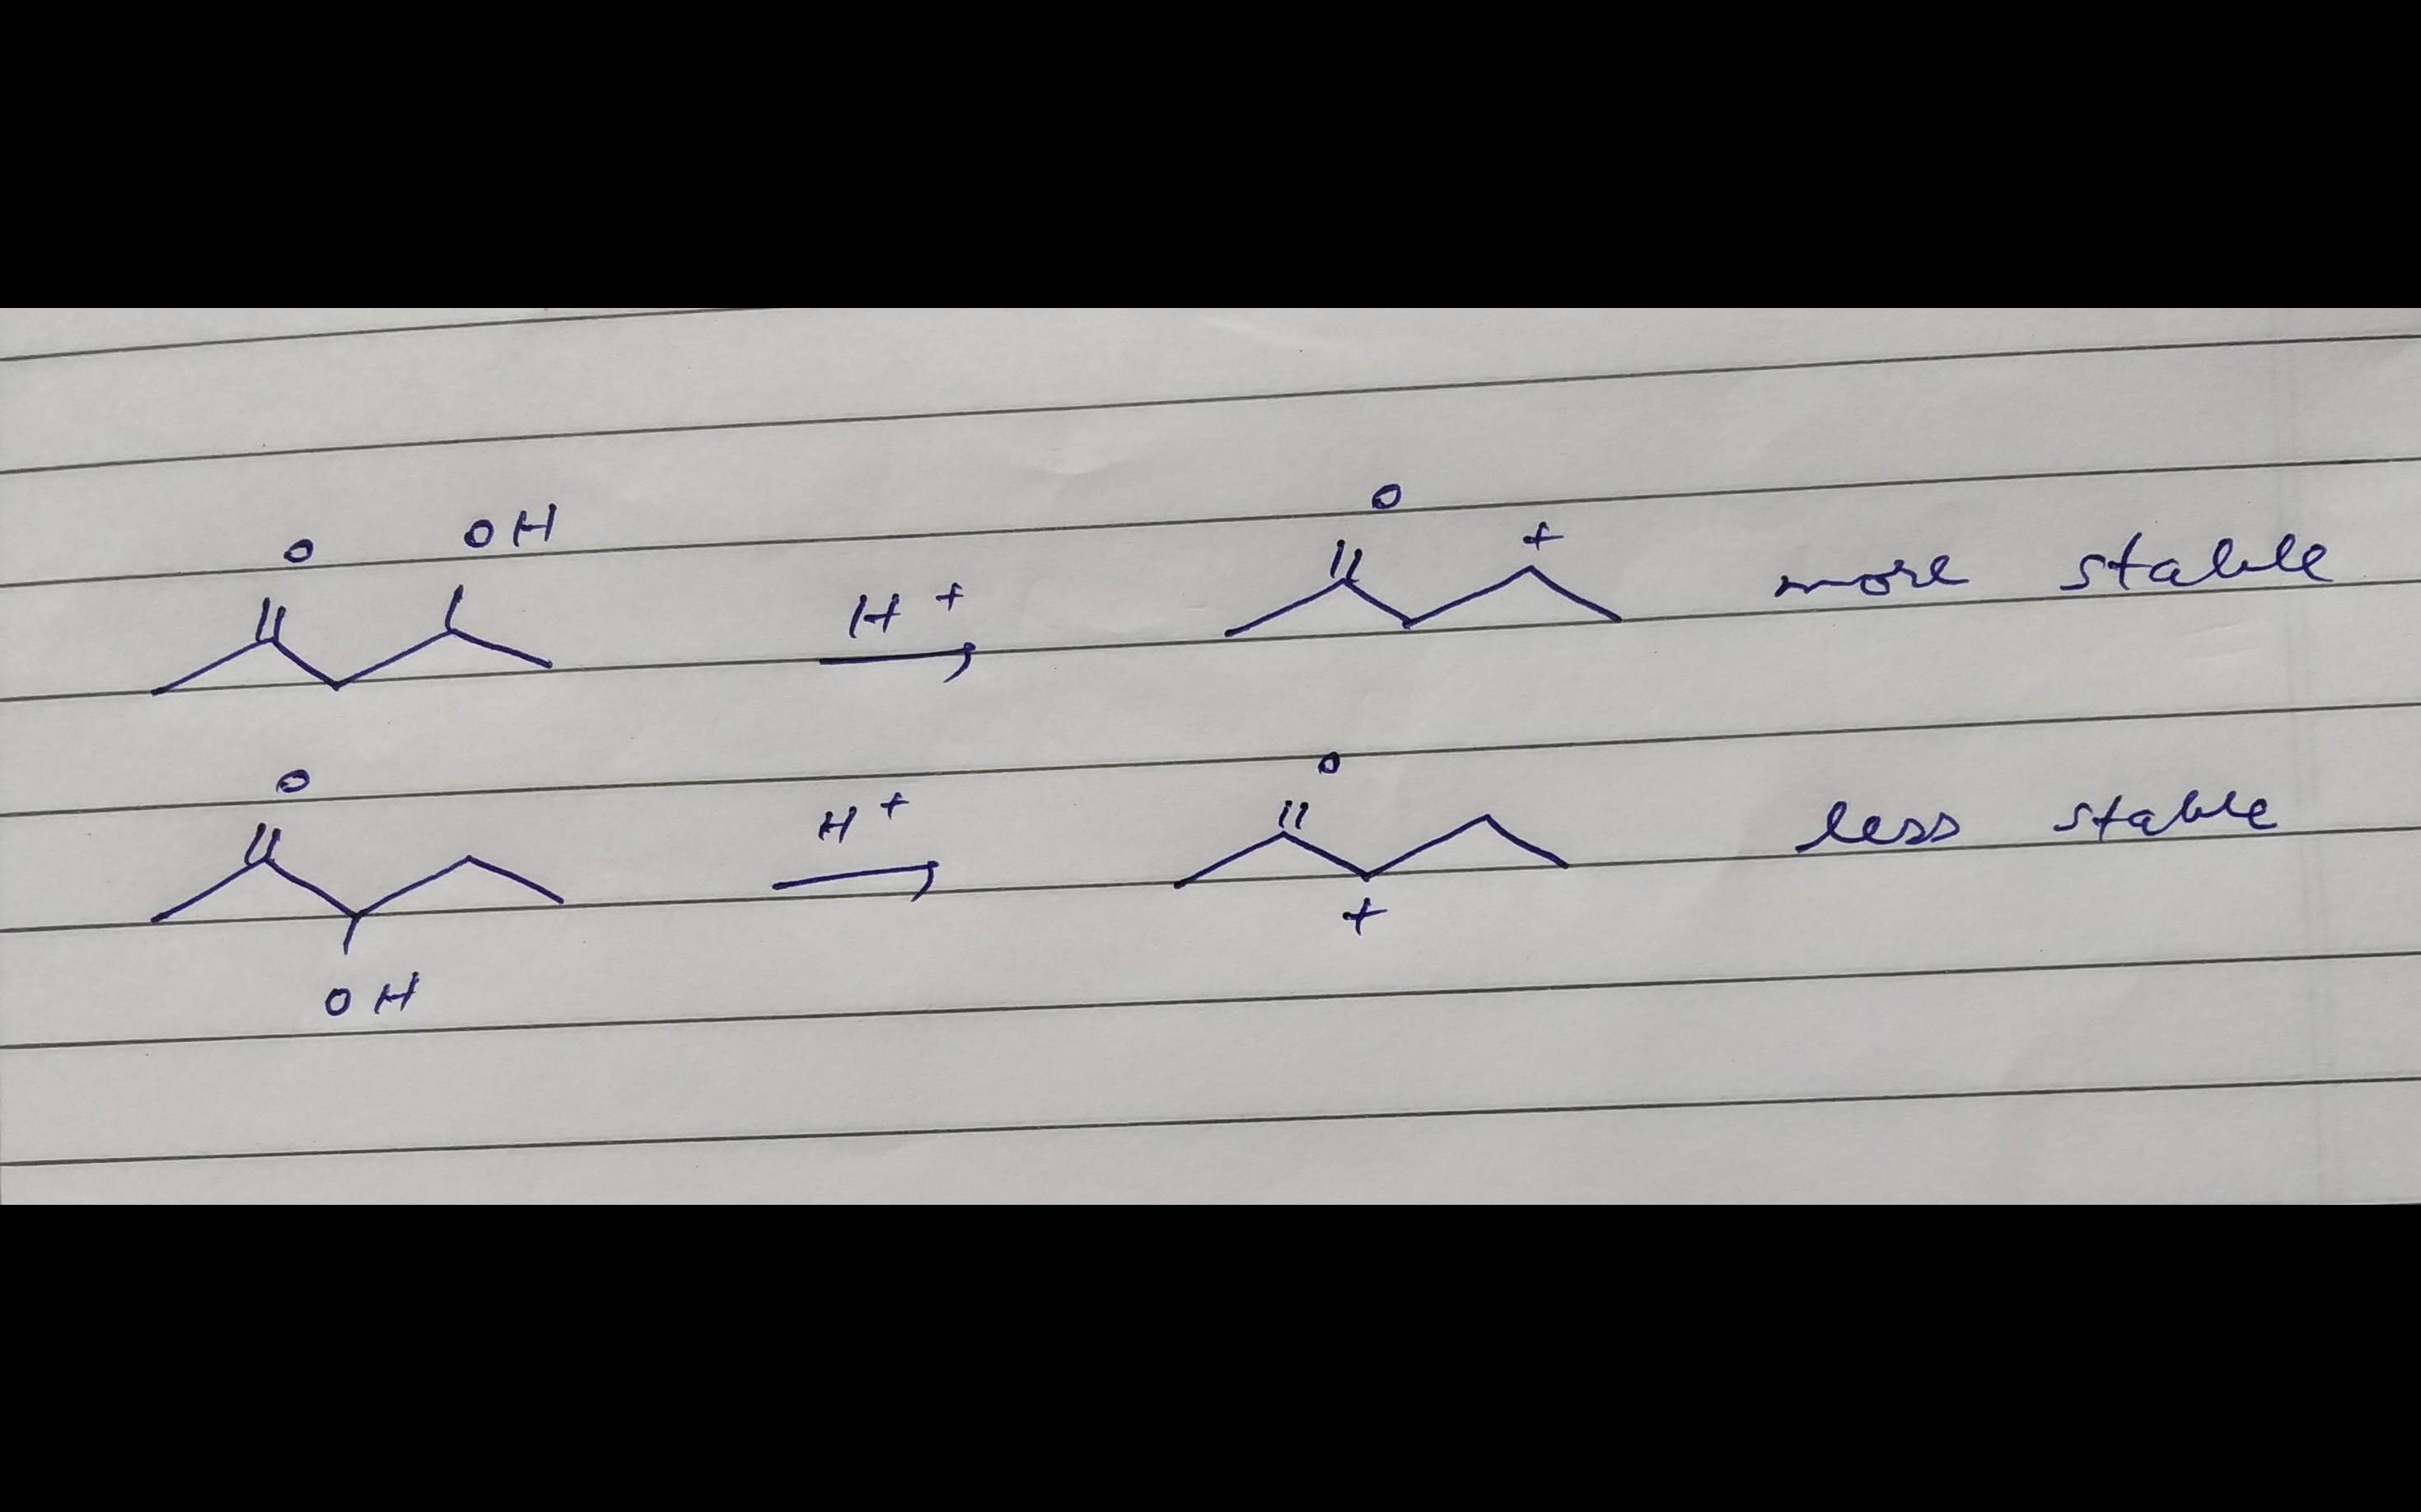 O OH H+ O + more stable
O H+ O less stable
+
OH